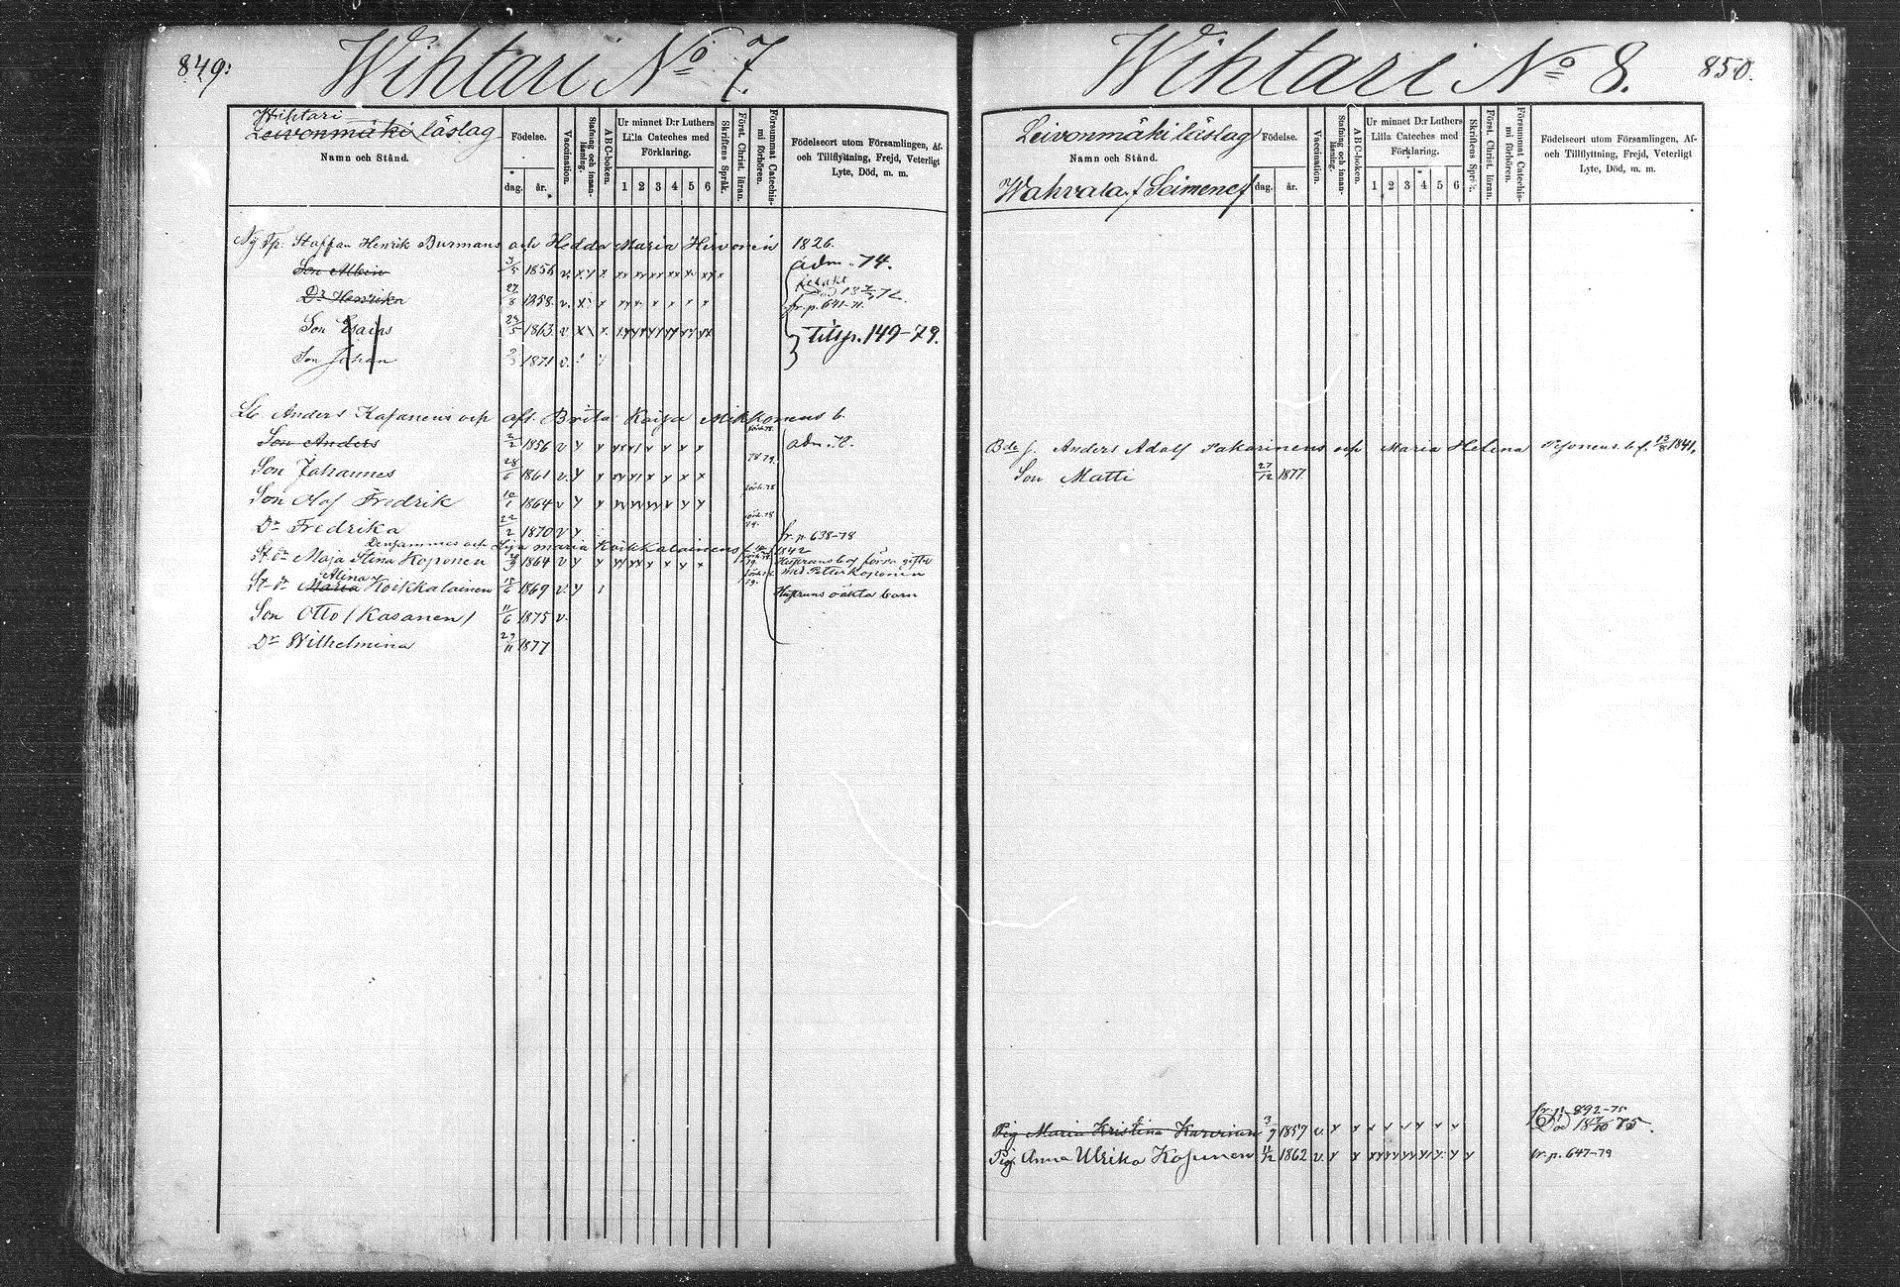 849.
Wihtari No 7.
Wihtari
Leivonmäki läslag
Namn och Stånd.
Födelse.
dag. år.
Vaccination.
Stafning och innan-läsning.
ABC-boken.
Ur minnet D:r Luthers
Lilla Cateches med
Förklaring.
1 2 3 4 5 6
Skriftens Språk.
Först. Christ. läran.
Försummat Catechis-mi förhören.
Födelseort utom Församlingen, Af-
och Tillflyttning, Frejd, Veterligt
Lyte, Död, m. m.
Staffan Henrik Burmans och Hedda Maria Hirvonen 1826
Son Albin 3/5 1856 v. adm. 74.
Dr Henrika 27/8 1858 v. fr. p. 641-71.
Son Esaias 1863 v. 149-79.
Son Johan 1871 v.
Anders Kasanens och afl. Brita Kaisa Mikkonens b.
Son Anders 2/2 1856 v adm.
Son Johannes 28/6 1861 v. 78 79.
Son Olof Fredrik 10/1 1864 v
Dr Fredrika 22/2 1870 v fr. p. 638-78
Densammes och Lisa Maria Koikkalainens 1842
St. Dr Maja Stina Koponen 1864 v
med Peter Koponen
St. Dr Maria Alina Koikkalainen 1869 v. Hustruns oäkta barn
Son Otto (Kasanen) 11/6 1875 v.
Dr Wilhelmina 27/11 1877
Wihtari No 8.
850.
Leivonmäki läslag
Namn och Stånd.
Wahvala
Födelse.
dag. år.
Vaccination.
Stafning och innan-läsning.
ABC-boken.
Ur minnet D:r Luthers
Lilla Cateches med
Förklaring.
1 2 3 4 5 6
Skriftens Språk.
Först. Christ. läran.
Försummat Catechis-mi förhören.
Födelseort utom Församlingen, Af-
och Tillflyttning, Frejd, Veterligt
Lyte, Död, m. m.
Anders Adolf Pakarinens och Maria Helena 1841.
Son Matti 27/12 1877.
Pig. Maria Kristina Karvinen 3/7 1857 v. fr. p. 892-75
Pig. Anna Ulrika Koponen 1862 v. fr. p. 647-79